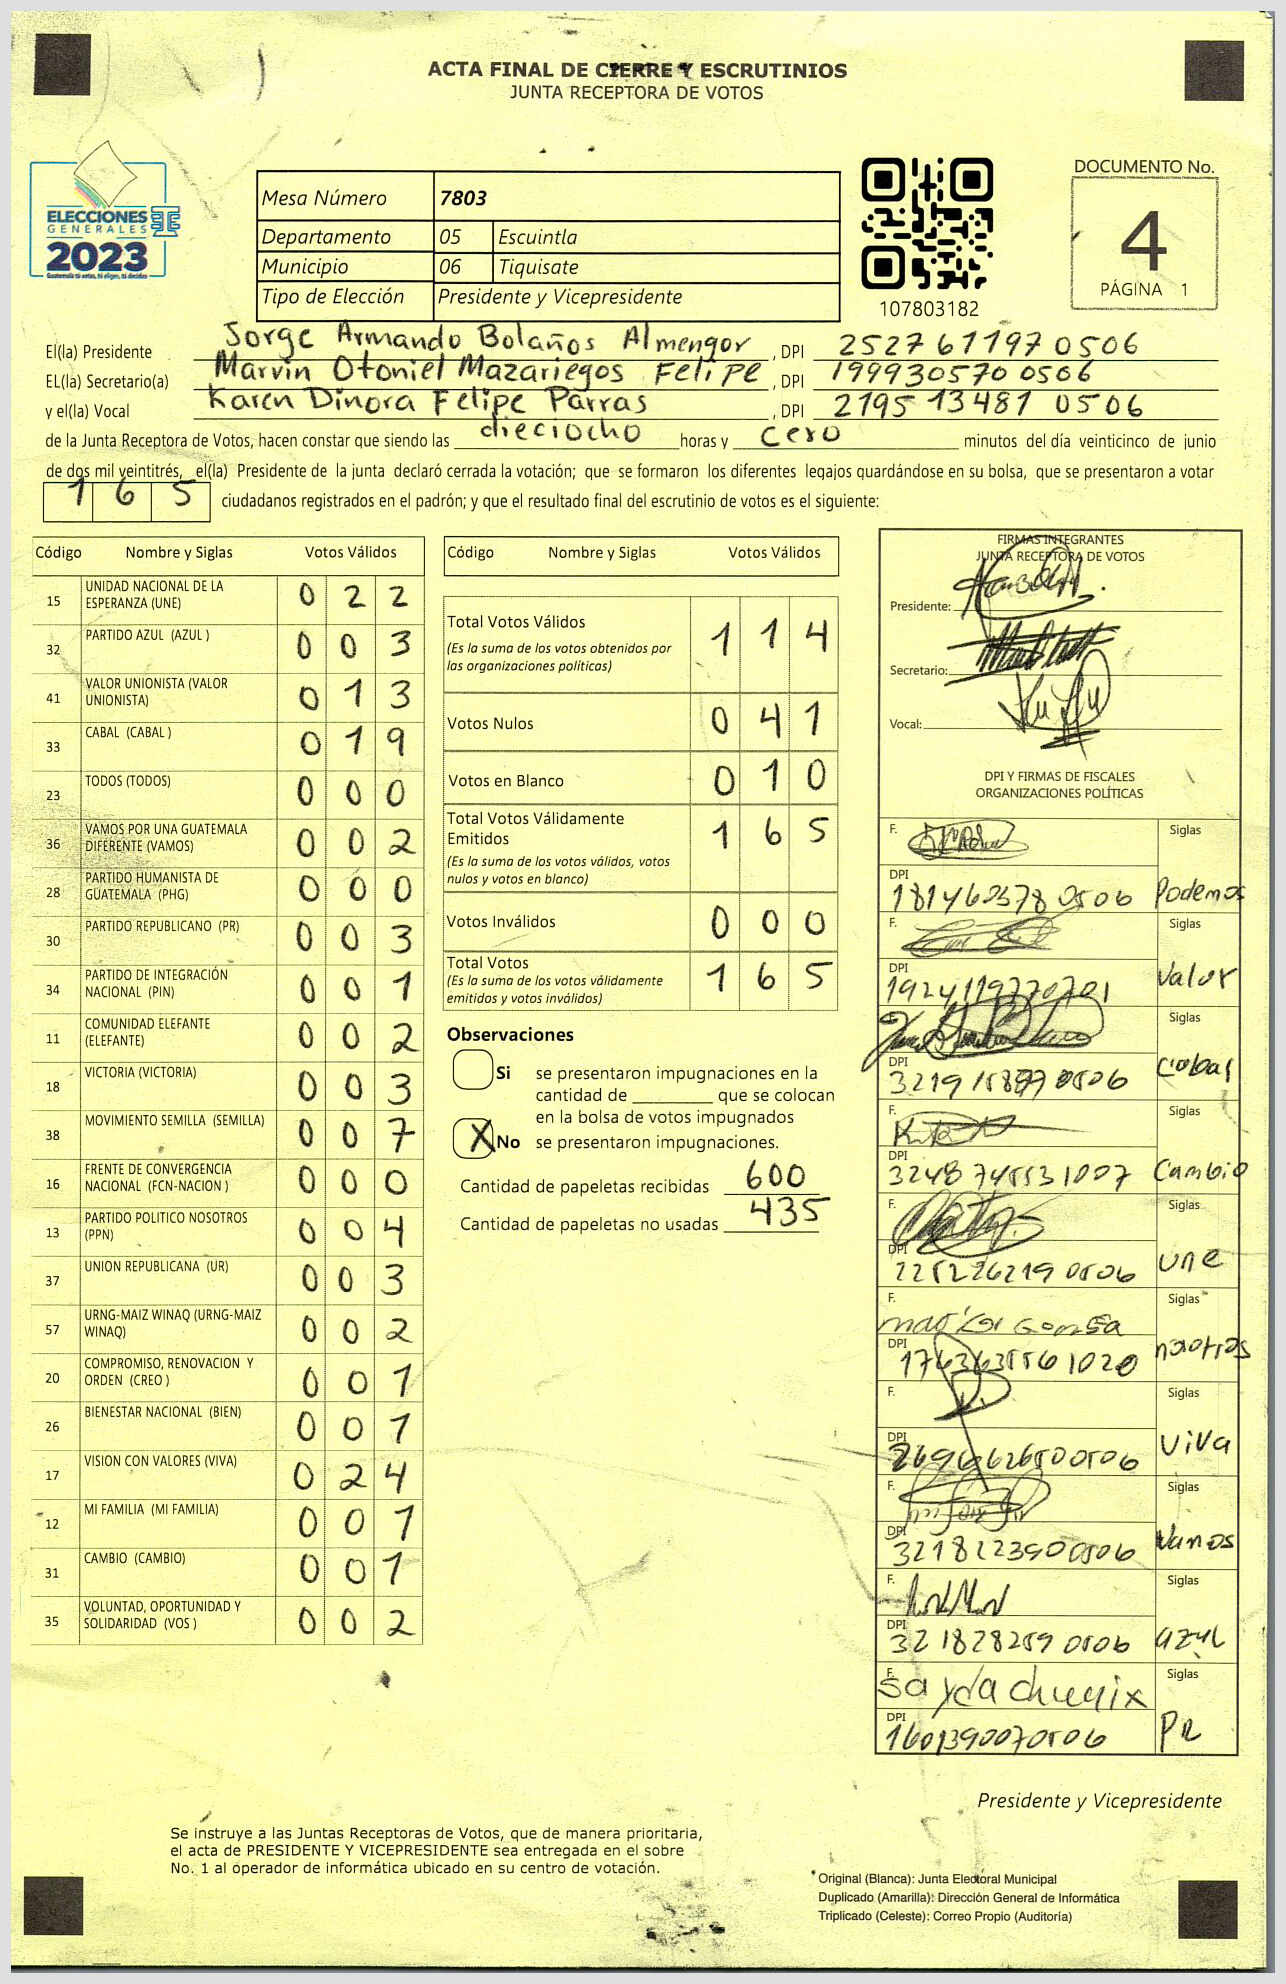 ACTA FINAL DE CIERRE Y ESCRUTINIOS
JUNTA RECEPTORA DE VOTOS
ELECCIONES
GENERALES
2023
Guatemala tú votas, tú eliges, tú decides
Mesa Número 7803
Departamento 05 Escuintla
Municipio 06 Tiquisate
Tipo de Elección Presidente y Vicepresidente
107803182
DOCUMENTO No.
4
PÁGINA 1
El(la) Presidente Jorge Armando Bolaños Almengor, DPI 2527 61197 0506
EL(la) Secretario(a) Marvin Otoniel Mazariegos Felipe, DPI 199930570 0506
y el(la) Vocal Karen Dinora Felipe Parras, DPI 2195 13481 0506
de la Junta Receptora de Votos, hacen constar que siendo las dieciocho horas y cero minutos del día veinticinco de junio
de dos mil veintitrés, el(la) Presidente de la junta declaró cerrada la votación; que se formaron los diferentes legajos guardándose en su bolsa, que se presentaron a votar
165 ciudadanos registrados en el padrón; y que el resultado final del escrutinio de votos es el siguiente:
Código Nombre y Siglas Votos Válidos
15 UNIDAD NACIONAL DE LA ESPERANZA (UNE) 0 2 2
32 PARTIDO AZUL (AZUL ) 0 0 3
41 VALOR UNIONISTA (VALOR UNIONISTA) 0 1 3
33 CABAL (CABAL ) 0 1 9
23 TODOS (TODOS) 0 0 0
36 VAMOS POR UNA GUATEMALA DIFERENTE (VAMOS) 0 0 2
28 PARTIDO HUMANISTA DE GUATEMALA (PHG) 0 0 0
30 PARTIDO REPUBLICANO (PR) 0 0 3
34 PARTIDO DE INTEGRACIÓN NACIONAL (PIN) 0 0 1
11 COMUNIDAD ELEFANTE (ELEFANTE) 0 0 2
18 VICTORIA (VICTORIA) 0 0 3
38 MOVIMIENTO SEMILLA (SEMILLA) 0 0 7
16 FRENTE DE CONVERGENCIA NACIONAL (FCN-NACION ) 0 0 0
13 PARTIDO POLITICO NOSOTROS (PPN) 0 0 4
37 UNION REPUBLICANA (UR) 0 0 3
57 URNG-MAIZ WINAQ (URNG-MAIZ WINAQ) 0 0 2
20 COMPROMISO, RENOVACION Y ORDEN (CREO ) 0 0 1
26 BIENESTAR NACIONAL (BIEN) 0 0 1
17 VISION CON VALORES (VIVA) 0 2 4
12 MI FAMILIA (MI FAMILIA) 0 0 1
31 CAMBIO (CAMBIO) 0 0 1
35 VOLUNTAD, OPORTUNIDAD Y SOLIDARIDAD (VOS ) 0 0 2
Código Nombre y Siglas Votos Válidos
Total Votos Válidos 1 1 4
(Es la suma de los votos obtenidos por
las organizaciones políticas)
Votos Nulos 0 4 1
Votos en Blanco 0 1 0
Total Votos Válidamente
Emitidos 1 6 5
(Es la suma de los votos válidos, votos
nulos y votos en blanco)
Votos Inválidos 0 0 0
Total Votos 1 6 5
(Es la suma de los votos válidamente
emitidos y votos inválidos)
Observaciones
Si se presentaron impugnaciones en la
cantidad de ________ que se colocan
en la bolsa de votos impugnados
X No se presentaron impugnaciones.
Cantidad de papeletas recibidas 600
Cantidad de papeletas no usadas 435
FIRMAS INTEGRANTES
JUNTA RECEPTORA DE VOTOS
Presidente:
Secretario:
Vocal:
DPI Y FIRMAS DE FISCALES
ORGANIZACIONES POLÍTICAS
F. Siglas
DPI Podemos
F. Siglas
DPI Valor
F. Siglas
DPI
F. Siglas
DPI Cambio
F. Siglas
DPI 225226219 0506 une
F. Siglas
DPI nosotros
F. Siglas
DPI VIVA
F. Siglas
DPI 321822390 0506 Vamos
F. Siglas
DPI 321828259 0506 azul
F. Siglas
DPI 1601390070506 PR
Presidente y Vicepresidente
Se instruye a las Juntas Receptoras de Votos, que de manera prioritaria,
el acta de PRESIDENTE Y VICEPRESIDENTE sea entregada en el sobre
No. 1 al operador de informática ubicado en su centro de votación.
Original (Blanca): Junta Electoral Municipal
Duplicado (Amarilla): Dirección General de Informática
Triplicado (Celeste): Correo Propio (Auditoría)